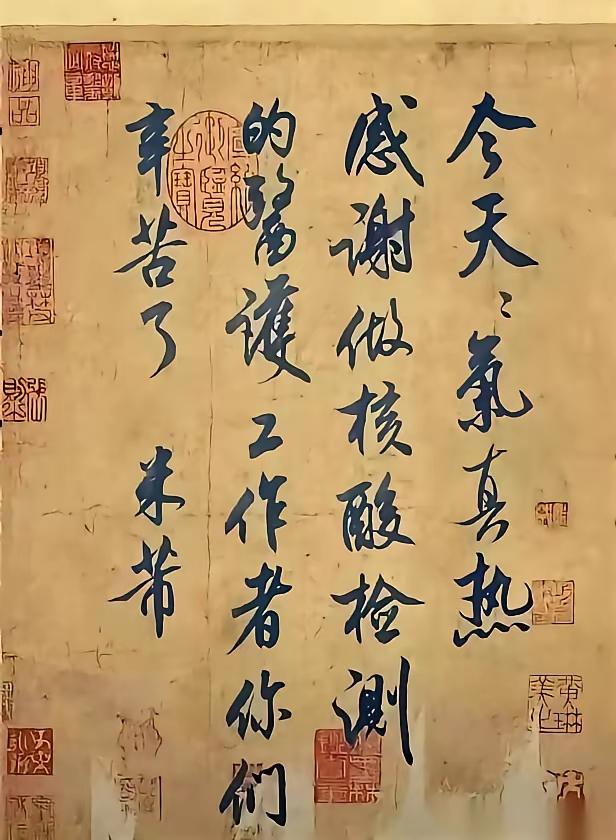 今天〻氣真热
感谢做核酸检测
的醫護工作者你們
辛苦了 米芾
黃琳美之